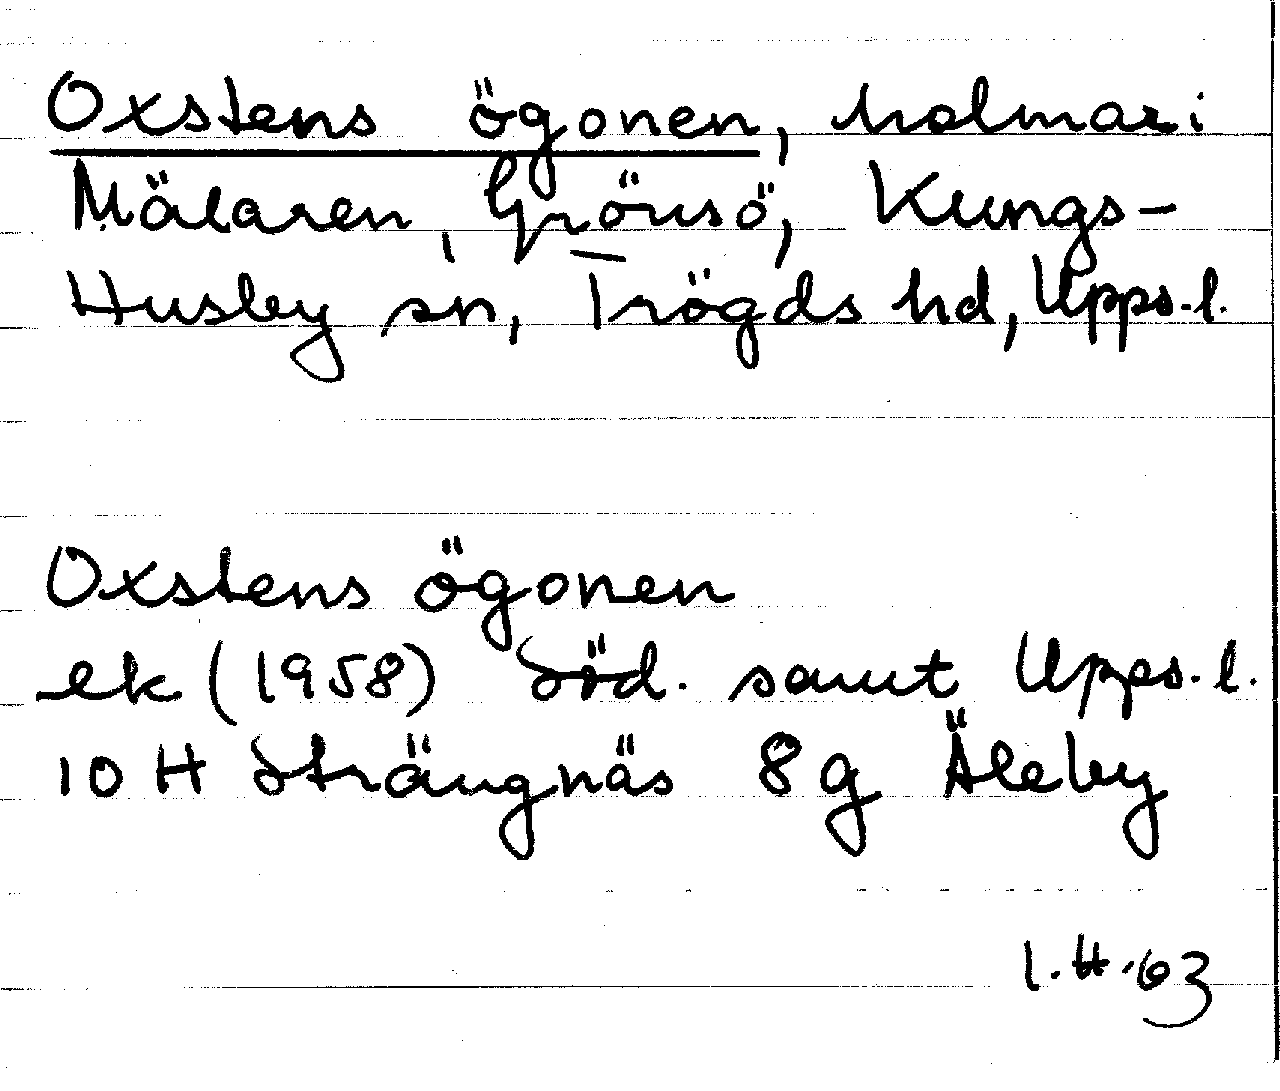 Oxstens ögonen, holmar i
Mälaren, Grönsö, Kungs-
Husby sn, Trögds hd, Upps.l.
Oxstens ögonen
ek (1958) Söd. samt Upps.l.
10 H Strängnäs 8g Äleby
I.H.63